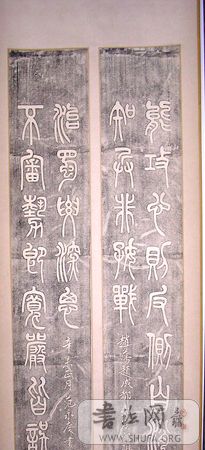 能攻心則反側自消
知兵非好戰
不審勢即寬嚴皆誤
治蜀要深思
書法网
WWW.SHUFA.ORG